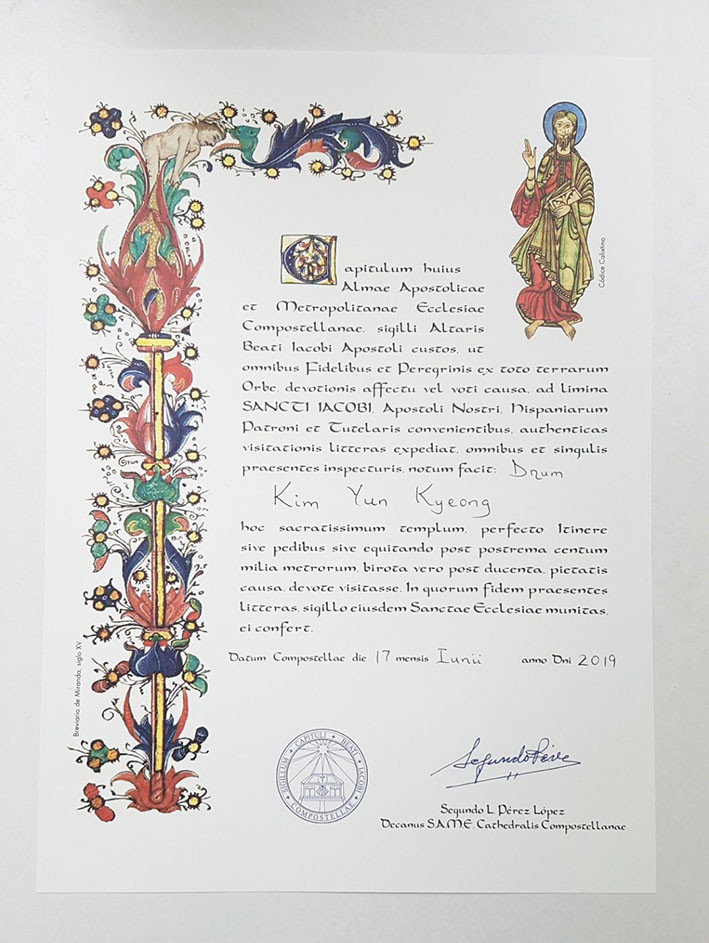 Códice Calixtino
Capitulum huius
Almae Apostolicae
et Metropolitanae Ecclesiae
Compostellanae, sigilli Altaris
Beati Iacobi Apostoli custos, ut
omnibus Fidelibus et Peregrinis ex toto terrarum
Orbe, devotionis affectu vel voti causa, ad limina
SANCTI IACOBI, Apostoli Nostri, Hispaniarum
Patroni et Tutelaris convenientibus, authenticas
visitationis litteras expediat, omnibus et singulis
praesentes inspecturis, notum facit: Dnum
Kim Yun Kyeong
hoc sacratissimum templum, perfecto Itinere
sive pedibus sive equitando post postrema centum
milia metrorum, birota vero post ducenta, pietatis
causa, devote visitasse. In quorum fidem praesentes
litteras, sigillo eiusdem Sanctae Ecclesiae munitas,
ei confert.
Datum Compostellae die 17 mensis Iunii anno Dni 2019
Breviario de Miranda, siglo XV
SIGILLUM CAPITULI BEATI IACOBI COMPOSTELLAE
Segundo Pérez
Segundo L. Pérez López
Decanus S.A.M.E. Cathedralis Compostellanae